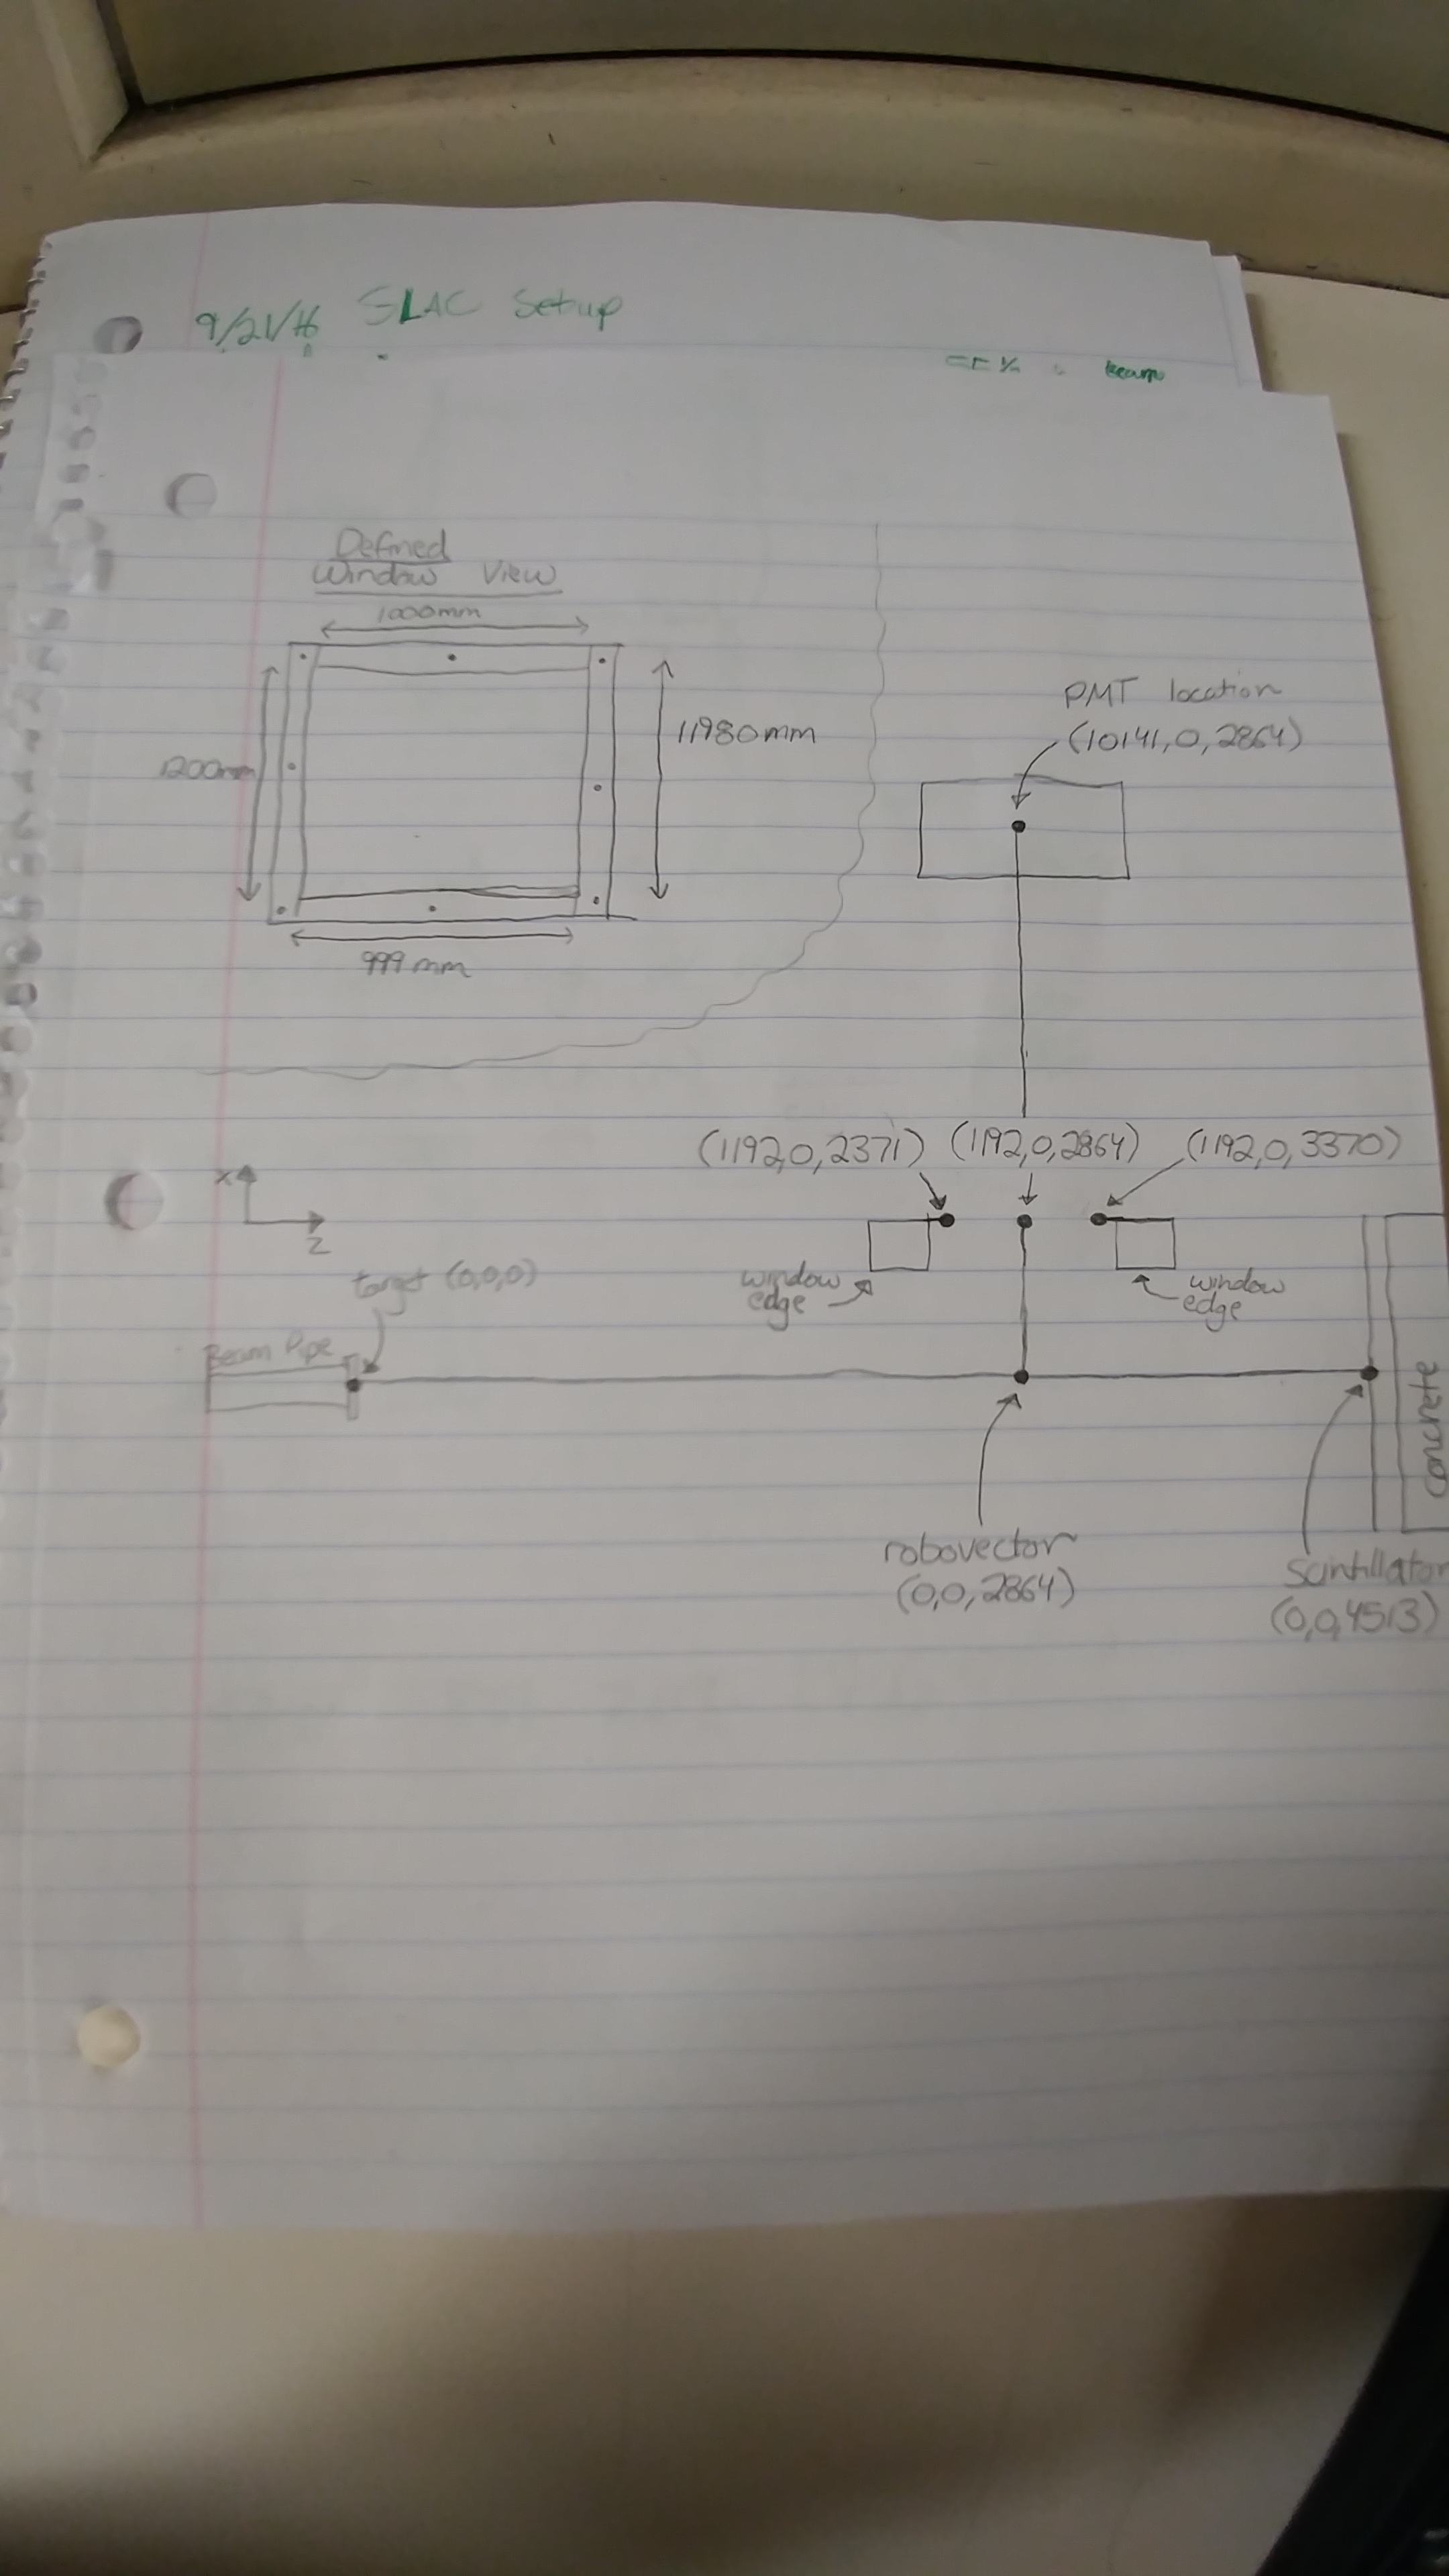 9/21/16 SLAC Setup
beam
Defined
Window View
1000mm
1200mm
11980mm
999mm
PMT location
(10141,0,2864)
(1192,0,2371) (1192,0,2864) (1192,0,3370)
x
z
target (0,0,0)
window
edge
window
edge
Beam Pipe
concrete
robovector
(0,0,2864)
Scintillator
(0,0,4513)